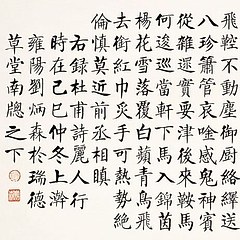 飛鞚不動塵御廚絡繹送
八珍簫管哀吟感鬼神賓
從雜遝實要津後來鞍馬
何逡巡當軒下馬入錦茵
楊花雪落覆白蘋青鳥飛
去銜紅巾炙手可熱勢絶
倫慎莫近前丞相瞋
右録杜甫麗人行
時在己巳仲冬上澣
雍陽劉炳森於瑞德
草堂南牖之下